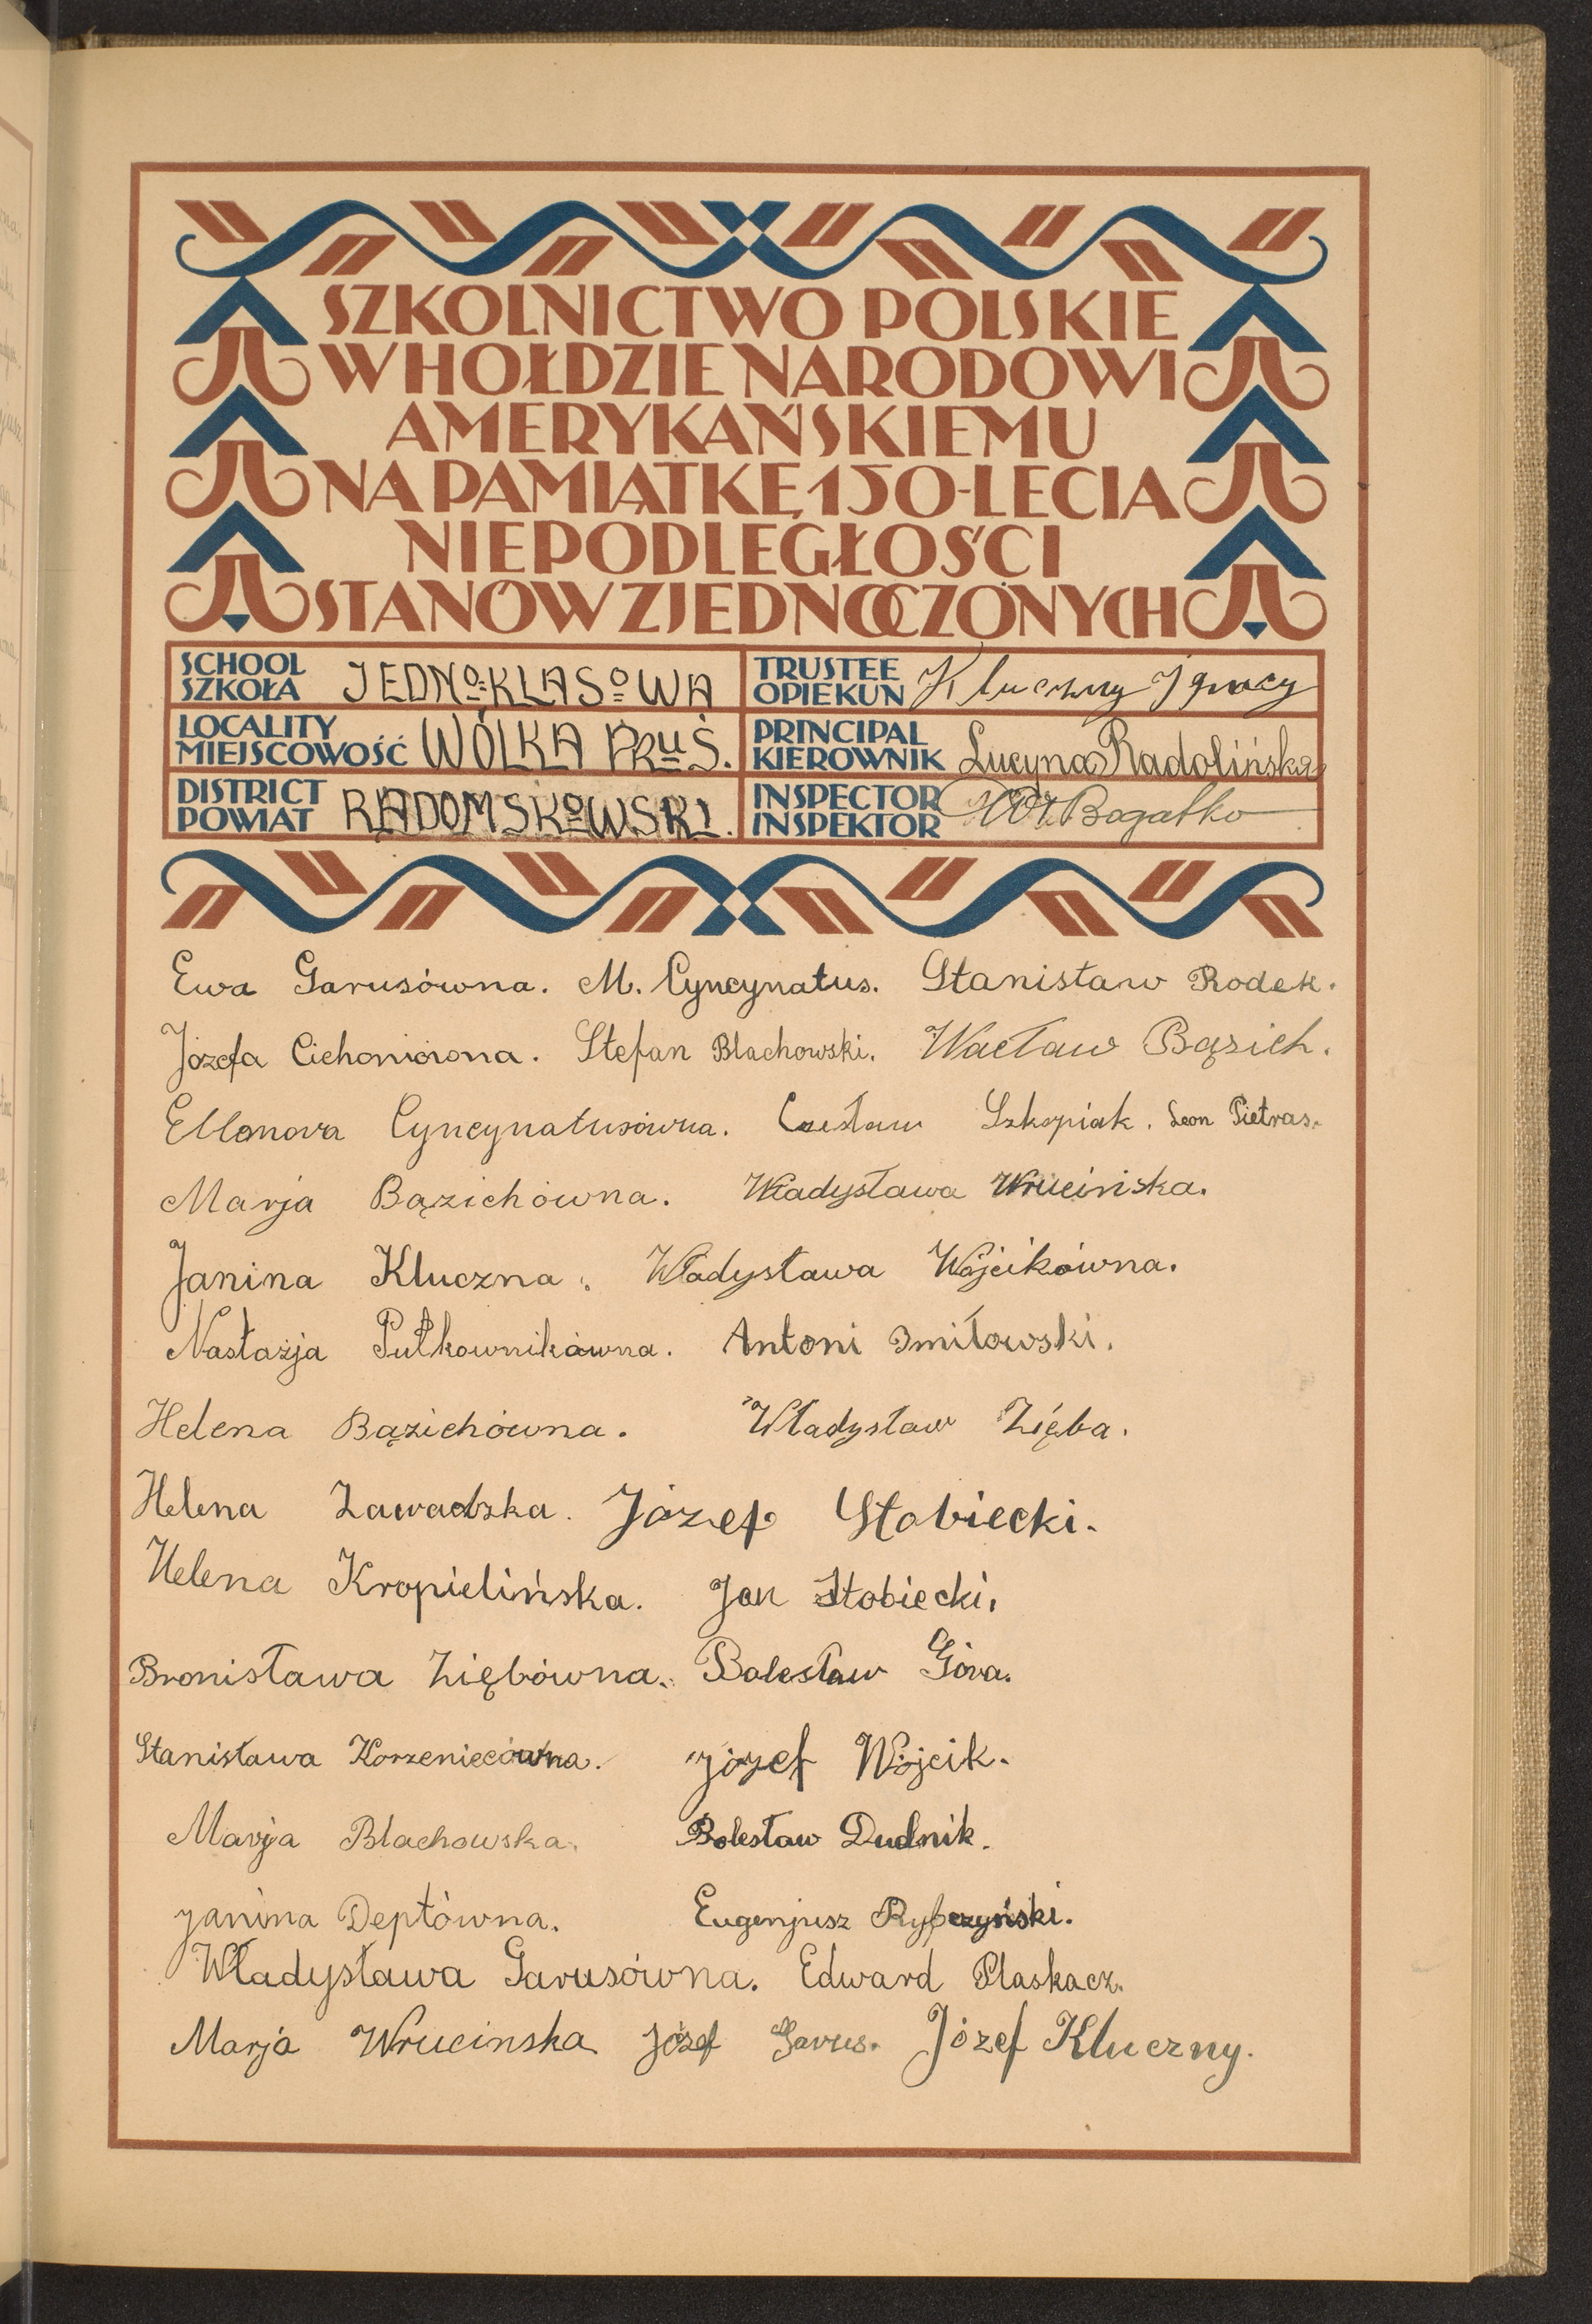 SZKOLNICTWO POLSKIE
W HOŁDZIE NARODOWI
AMERYKAŃSKIEMU
NA PAMIĄTKĘ 150-LECIA
NIEPODLEGŁOŚCI
STANÓW ZJEDNOCZONYCH
SCHOOL
SZKOŁA JEDNO-KLASOWA
TRUSTEE
OPIEKUN Kluczny Ignacy
LOCALITY
MIEJSCOWOŚĆ WÓLKA PRUS.
PRINCIPAL
KIEROWNIK Lucyna Radolińska
DISTRICT
POWIAT RADOMSKOWSKI.
INSPECTOR
INSPEKTOR Wł. Bogatko
Ewa Garusówna. M. Cyncynatus. Stanisław Rodek.
Józefa Stefan Blachowski. Wacław Bązich.
Cyncynatusówna. Czesław Szkopiak. Leon Pietras.
Marja Bązichówna. Władysława Wrucińska.
Janina Kluczna. Władysława Wójcikówna.
Nastazja Pułkownikówna. Antoni Imiłowski.
Helena Bązichówna. Władysław Zięba.
Helena Zawadzka. Józef Stobiecki.
Helena Kropielińska. Jan Stobiecki.
Bronisława Ziębówna. Bolesław Góra.
Stanisława Korzeniecówna. Józef Wójcik.
Marja Blachowska. Bolesław Dudnik.
Janina Deptówna. Eugenjusz Rybczyński.
Władysława Garusówna. Edward Plaskacz.
Marja Wrucinska Józef Garus. Józef Kluczny.